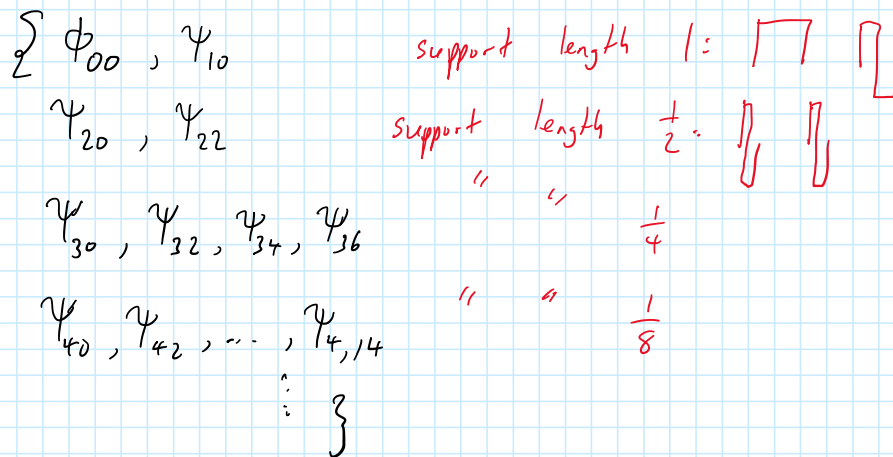 { ϕ₀₀ , ψ₁₀ support length 1:
ψ₂₀ , ψ₂₂ support length 1/2:
ψ₃₀ , ψ₃₂ , ψ₃₄ , ψ₃₆ " " 1/4
ψ₄₀ , ψ₄₂ , ... , ψ₄,₁₄ " " 1/8
⋮ }